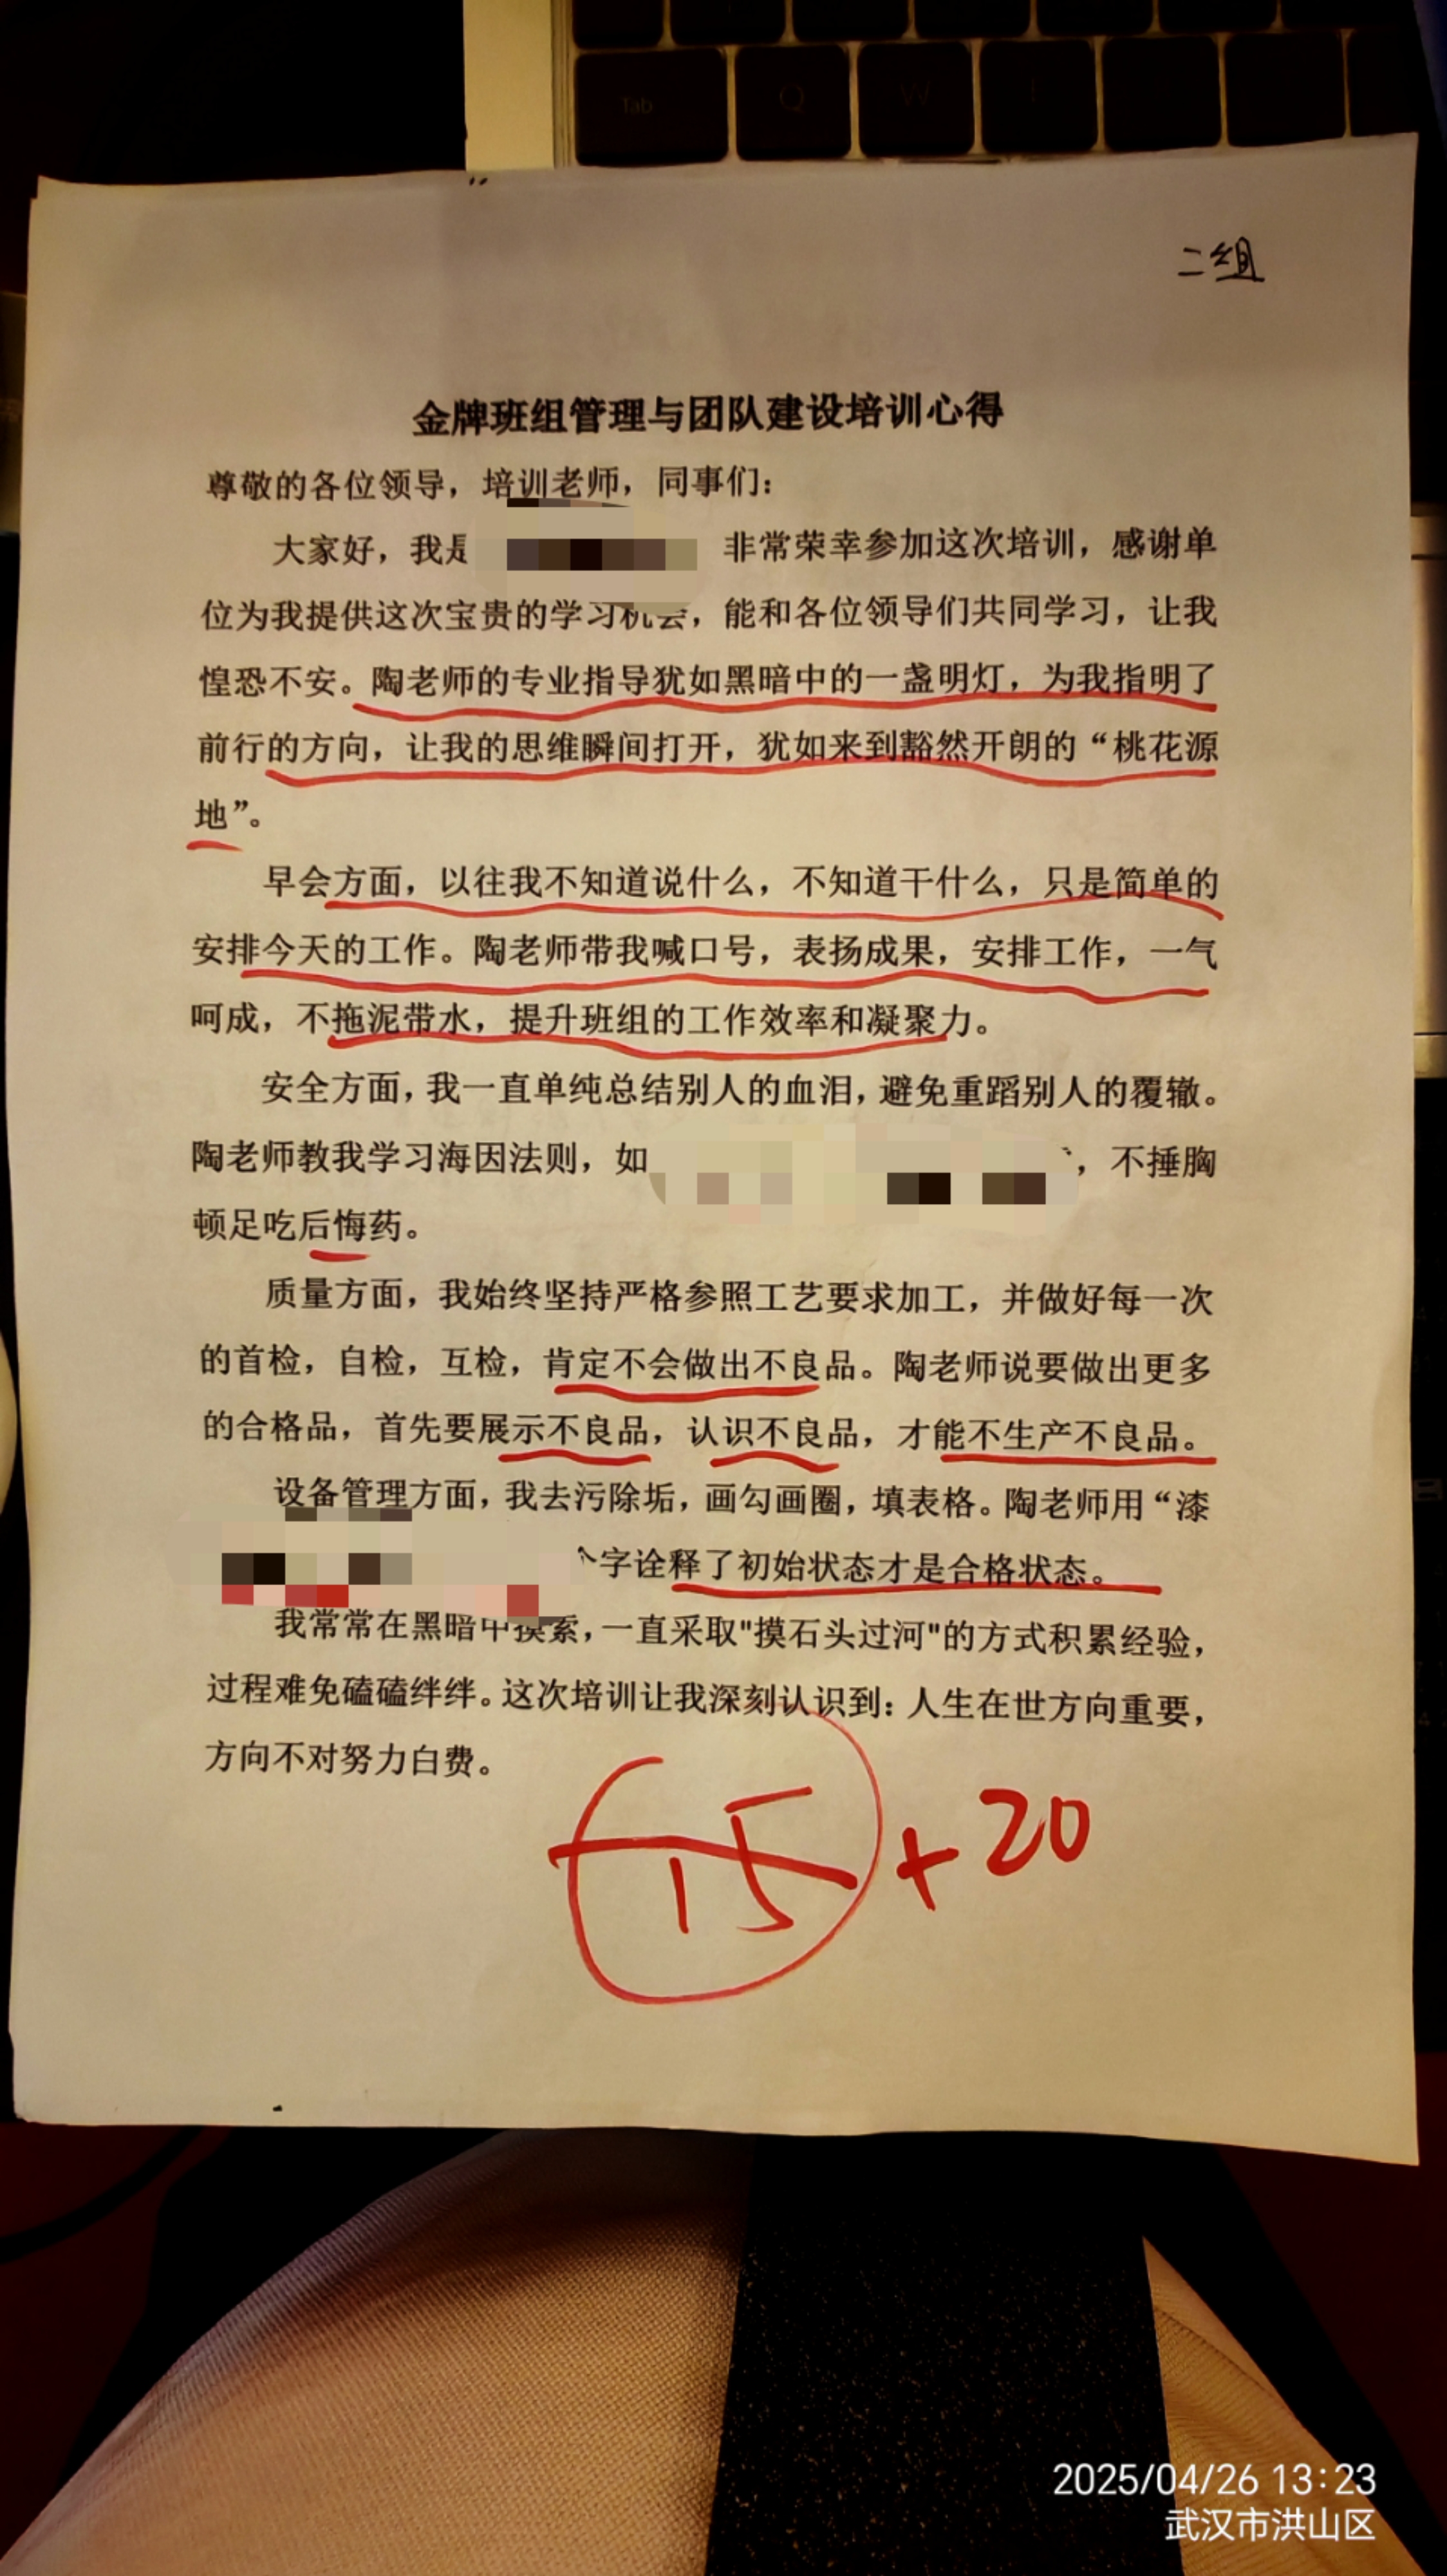 Tab
Q
W
二组
金牌班组管理与团队建设培训心得
尊敬的各位领导，培训老师，同事们：
大家好，我是 非常荣幸参加这次培训，感谢单
位为我提供这次宝贵的学习机会，能和各位领导们共同学习，让我
惶恐不安。陶老师的专业指导犹如黑暗中的一盏明灯，为我指明了
前行的方向，让我的思维瞬间打开，犹如来到豁然开朗的“桃花源
地”。
早会方面，以往我不知道说什么，不知道干什么，只是简单的
安排今天的工作。陶老师带我喊口号，表扬成果，安排工作，一气
呵成，不拖泥带水，提升班组的工作效率和凝聚力。
安全方面，我一直单纯总结别人的血泪，避免重蹈别人的覆辙。
陶老师教我学习海因法则，如 ，不捶胸
顿足吃后悔药。
质量方面，我始终坚持严格参照工艺要求加工，并做好每一次
的首检，自检，互检，肯定不会做出不良品。陶老师说要做出更多
的合格品，首先要展示不良品，认识不良品，才能不生产不良品。
设备管理方面，我去污除垢，画勾画圈，填表格。陶老师用“漆
个字诠释了初始状态才是合格状态。
我常常在黑暗中摸索，一直采取"摸石头过河"的方式积累经验，
过程难免磕磕绊绊。这次培训让我深刻认识到：人生在世方向重要，
方向不对努力白费。
15 +20
2025/04/26 13:23
武汉市洪山区